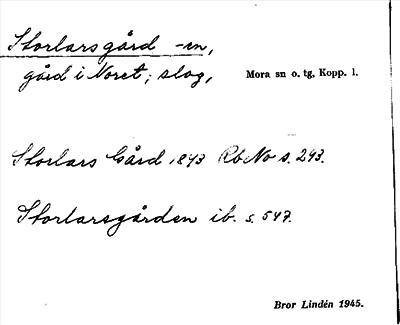 Storlarsgård -en,
gård i Noret; slog,
Mora sn o. tg, Kopp. l.
Storlars Gård 1843 Rb No s. 243.
Storlarsgården ib. s. 547.
Bror Lindén 1945.